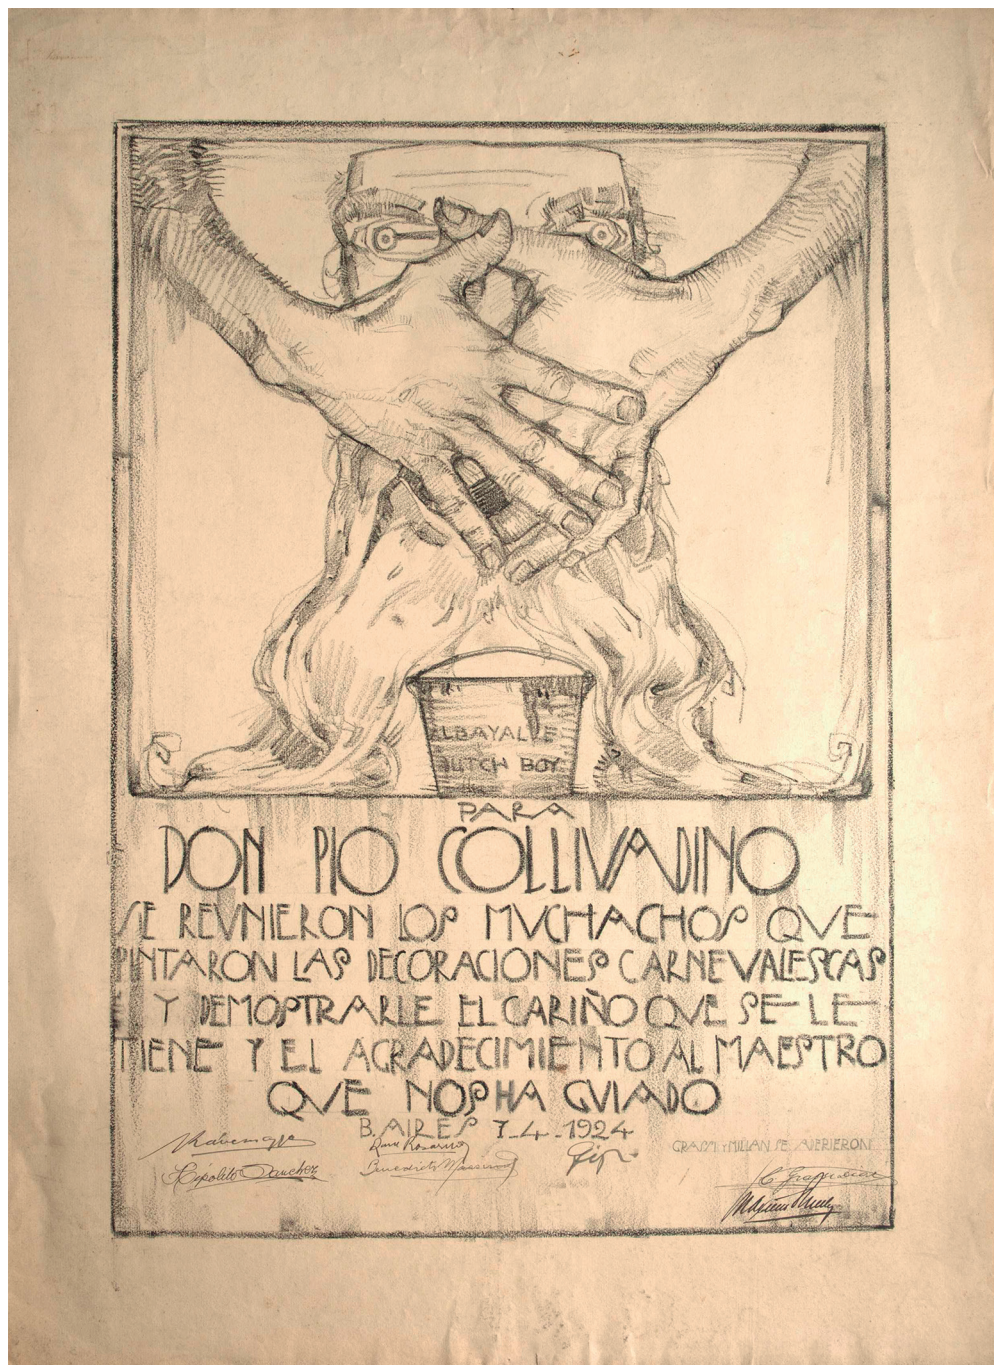 ALBAYALDE
DUTCH BOY
PARA
DON PIO COLLIVADINO
SE REVNIERON LOS MVCHACHOS QVE
PINTARON LAS DECORACIONES CARNEVALESCAS
Y DEMOSTRARLE EL CARIÑO QVE SE LE
TIENE Y EL AGRADECIMIENTO AL MAESTRO
QVE NOS HA GVIADO
B. AIRES 7-4-1924
GRASSI Y MILIAN SE AVERIERON
Hipolito Sanchez
Benedicto